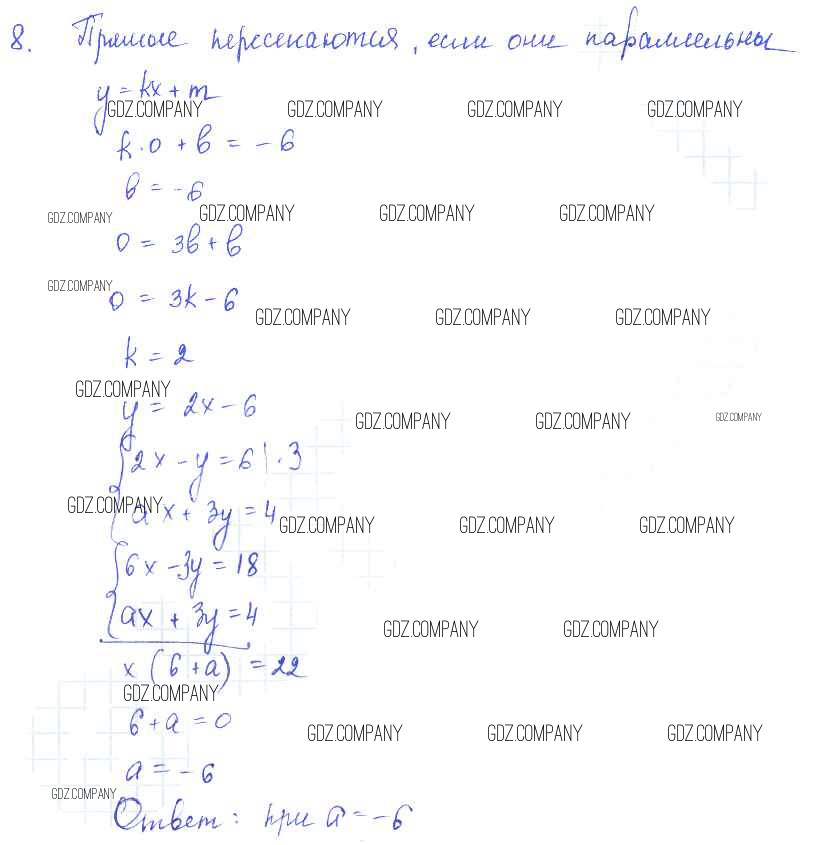 8. Прямые пересекаются, если они параллельны
y = kx + m
GDZ.COMPANY GDZ.COMPANY GDZ.COMPANY GDZ.COMPANY
k · 0 + b = -6
b = -6
GDZ.COMPANY GDZ.COMPANY GDZ.COMPANY GDZ.COMPANY
0 = 3b + b
GDZ.COMPANY
0 = 3k - 6
GDZ.COMPANY GDZ.COMPANY GDZ.COMPANY
k = 2
GDZ.COMPANY
y = 2x - 6
GDZ.COMPANY GDZ.COMPANY GDZ.COMPANY
2x - y = 6 | · 3
GDZ.COMPANY
ax + 3y = 4
GDZ.COMPANY GDZ.COMPANY GDZ.COMPANY
6x - 3y = 18
ax + 3y = 4
GDZ.COMPANY GDZ.COMPANY
x (6 + a) = 22
GDZ.COMPANY
6 + a = 0
GDZ.COMPANY GDZ.COMPANY GDZ.COMPANY
a = -6
GDZ.COMPANY
Ответ: при a = -6